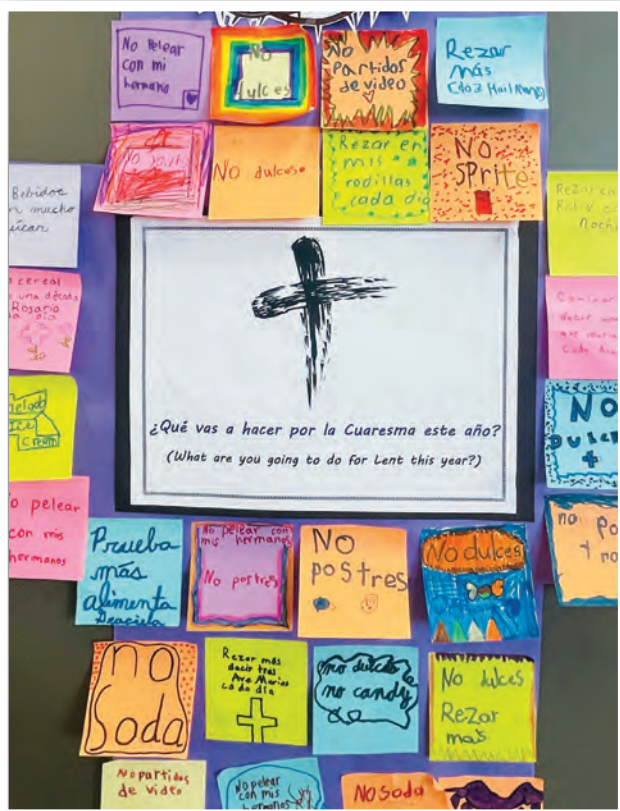 No Pelear
con mi
hermano
No
dulces
No
Partidos
de video
Rezar
más
(do 3 Hail Marys)
No
No dulces
Rezar en
mis
rodillas
cada día
NO
SPrite
Bebidas
mucho
Rezar en
Noch
cereal
una década
Rosario
día
decir
Ave Maria
cada día
¿Qué vas a hacer por la Cuaresma este año?
(What are you going to do for Lent this year?)
Ice
Cream
NO
Dulce
o pelear
con mis
hermanos
no
Prueba
más
alimenta
Graciela
No pelear con
mis hermanos
No postres
NO
postres
No dulces
no
Soda
Rezar más
decir tres
Ave Marias
cada día
no dulces
no candy
No dulces
Rezar
más
No partidos
de video
No pelear
con mis
hermanos
No Soda